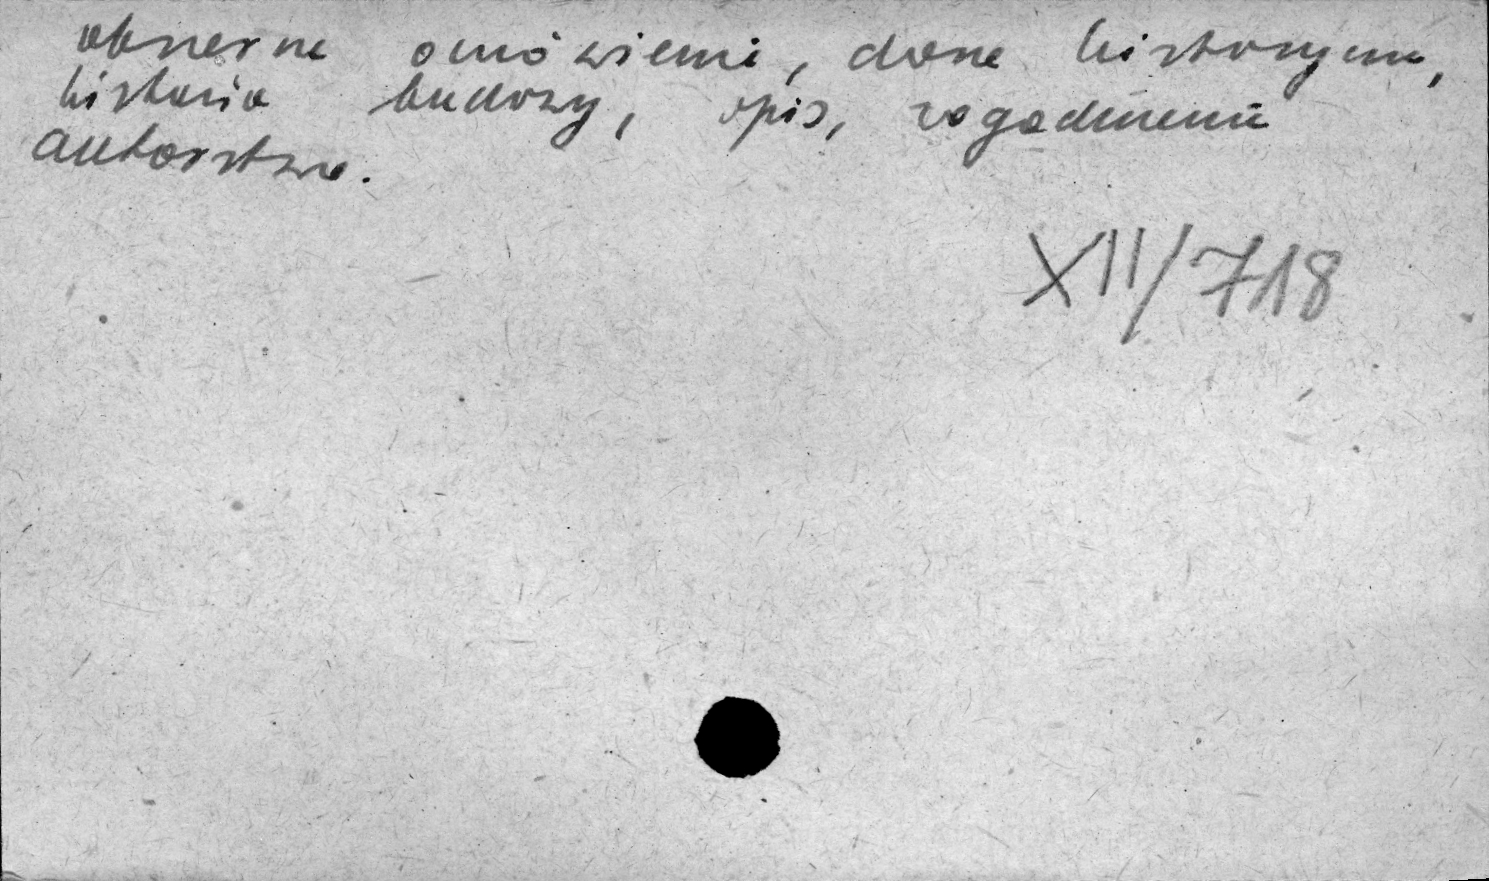 obszerne omówienie, dane historyczne,
historia budowy, opis, zagadnienie
autorstwa.
XII/718